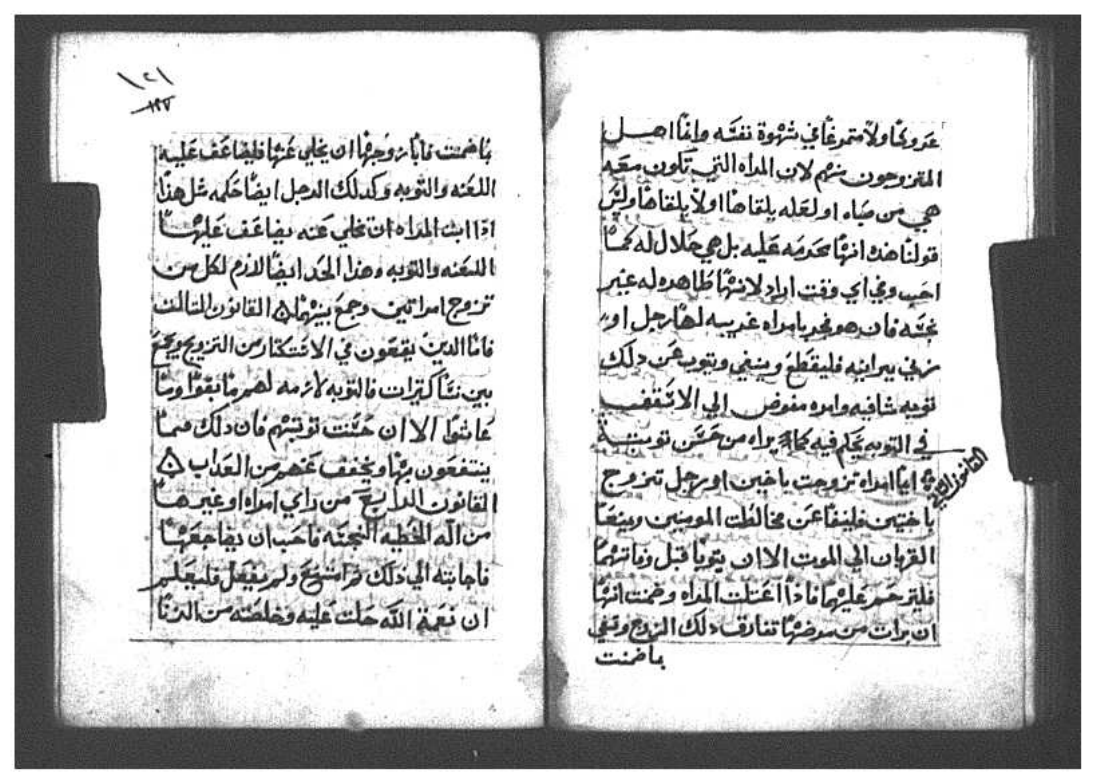 عروى ولا متمرغا في شهوة نفسه واما اهل
المتزوجون منهم لان المراه التي تكون معه
هي من صباه او لعله يلقاها اولا يلقاها وليس
قولنا هذه انها محرمه عليه بل هي حلال له كما
احب وفي اي وقت اراد لانها طاهره له غير
نجسه فان هو فجر بامراه غريبه لها رجل او
زني ببرانيه فليقطع وينفي ويتوب عن دلك
توبه شافيه وامره مفوض الي الاسقف
في التوبه يحكم فيه كما يراه من حسن توبته
القانون الثاني
ايما امراه تزوجت باخين او رجل تزوج
باختين فلينفا عن مخالطت المومنين ويمنعا
القربان الي الموت الا ان يتوبا قبل وفاتهما
فليترحم عليهما فاذا اعتلت المراه وضمنت انها
ان برات من مرضها تفارق دلك الزوج وتفي
بما ضمنت
١٢١
١٩٧
بما ضمنت فاذا زوجها ان يخلي عنها فليضاعف عليه
اللعنه والتوبه وكدلك الرجل ايضا حكمه مثل هذا
اذا ابت المراه ان تخلي عنه يضاعف عليها
اللعنه والتوبه وهذا الحد ايضا لازم لكل من
تزوج امراتين وجمع بينهما القانون التالت
فاما الدين يقعون في الاستكثار من التزويج ويجمع
بين نسا كتيرات فالتوبه لازمه لهم ما بقوا وما
عاشوا الا ان حسنت توبتهم فان دلك مما
ينتفعون بها ويخفف عنهم من العداب
القانون الرابع من راي امراه او غيرها
من اله الخطيه النجسه فاحب ان يضاجعها
فاجابته الي دلك ثم امتنع ولم يفعل فليعلم
ان نعمة الله حلت عليه وخلصته من الدنا